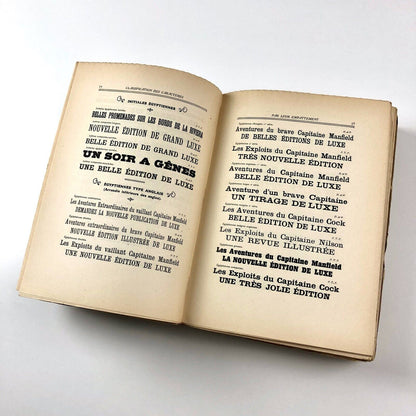 CLASSIFICATION DES CARACTÈRES
INITIALES ÉGYPTIENNES
BELLES PROMENADES SUR LES BORDS DE LA RIVIERA
NOUVELLE ÉDITION DE GRAND LUXE
BELLE ÉDITION DE GRAND LUXE
UN SOIR A GÊNES
UNE BELLE ÉDITION DE LUXE
ÉGYPTIENNES TYPE ANGLAIS
Les Aventures Extraordinaires du vaillant Capitaine Manfield
DEMANDEZ LA NOUVELLE PUBLICATION DE LUXE
Aventures extraordinaires du brave Capitaine Manfield
NOUVELLE ÉDITION ILLUSTRÉE DE LUXE
Les Exploits du vaillant Capitaine Manfield
UNE NOUVELLE ÉDITION DE LUXE
PAR LEUR EMPATTEMENT
Aventures du brave Capitaine Manfield
DE BELLES ÉDITIONS DE LUXE
Les Exploits du Capitaine Manfield
TRÈS NOUVELLE ÉDITION
Aventures du Capitaine Manfield
BELLE ÉDITION DE LUXE
Aventure d'un brave Capitaine
UN TIRAGE DE LUXE
Les Aventures du Capitaine Cock
BELLE ÉDITION DE LUXE
Les Exploits du Capitaine Nilson
UNE REVUE ILLUSTRÉE
Les Aventures du Capitaine Manfield
LA NOUVELLE ÉDITION DE LUXE
Les Exploits du Capitaine Cock
UNE TRÈS JOLIE ÉDITION